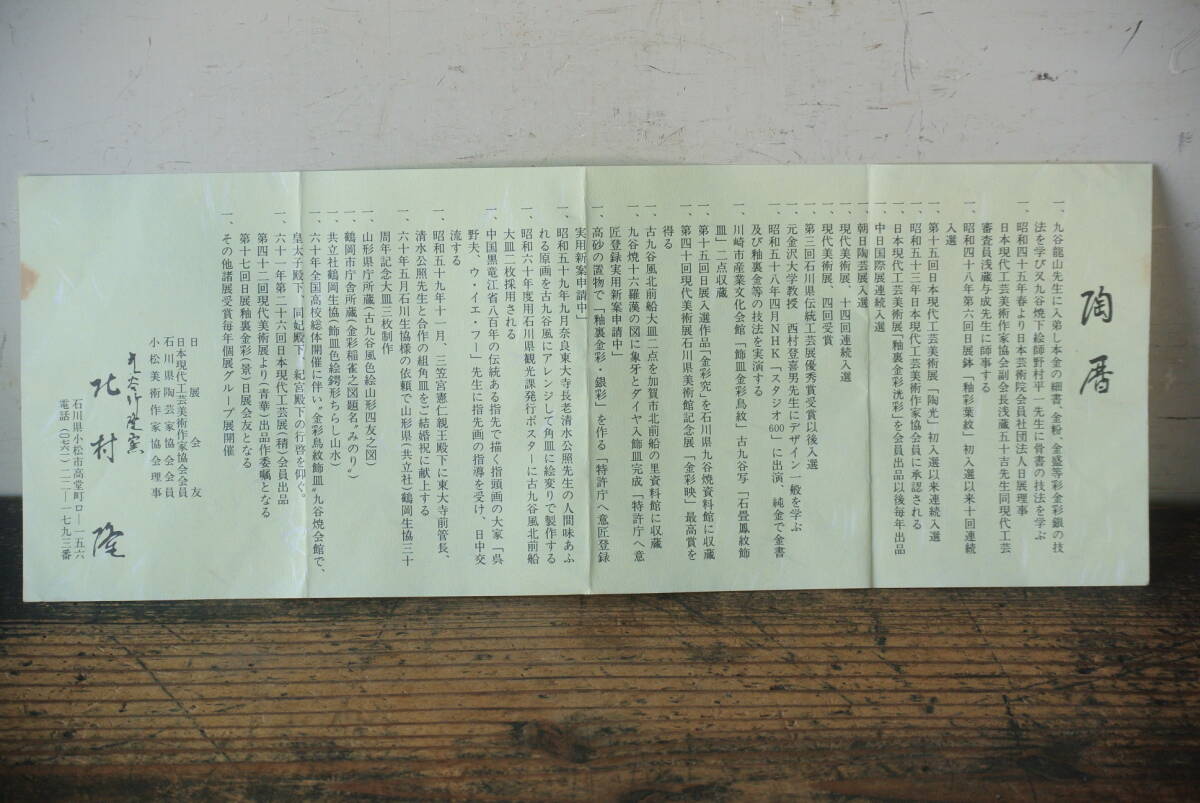 陶暦
一、九谷龍山先生に入弟し本金の細書、金粉、金盛等彩金彩銀の技
法を学び又九谷焼下絵師野村平一先生に骨書の技法を学ぶ
一、昭和四十五年春より日本芸術院会員社団法人日展理事
日本現代工芸美術作家協会副会長浅蔵五十吉先生同現代工芸
審査員浅蔵与成先生に師事する
一、昭和四十八年第六回日展鉢「釉彩葉紋」初入選以来十回連続
入選
一、第十五回日本現代工芸美術展「陶光」初入選以来連続入選
一、昭和五十三年日本現代工芸美術作家協会員に承認される
一、日本現代工芸美術展「釉裏金彩洸彩」を会員出品以後毎年出品
一、中日国際展連続入選
一、朝日陶芸展入選
一、現代美術展、十四回連続入選
一、現代美術展、四回受賞
一、第三回石川県伝統工芸展優秀賞受賞以後入選
一、元金沢大学教授　西村登喜男先生にデザイン一般を学ぶ
一、昭和五十八年四月NHK「スタジオ600」に出演、純金で金書
及び釉裏金等の技法を実演する
一、川崎市産業文化会館「飾皿金彩鳥紋」古九谷写「石畳鳳紋飾
皿」二点収蔵
一、第十五回日展入選作品「金彩究」を石川県九谷焼資料館に収蔵
一、第四十回現代美術展石川県美術館記念展「金彩映」最高賞を
得る
一、古九谷風北前船大皿二点を加賀市北前船の里資料館に収蔵
一、九谷焼十六羅漢の図に象牙とダイヤ入飾皿完成「特許庁へ意
匠登録実用新案申請中」
一、高砂の置物で「釉裏金彩・銀彩」を作る「特許庁へ意匠登録
実用新案申請中」
一、昭和五十九年九月奈良東大寺長老清水公照先生の人間味あふ
れる原画を古九谷風にアレンジして角皿に絵変りで製作する
一、昭和六十年度用石川県観光課発行ポスターに古九谷風北前船
大皿二枚採用される
一、中国黒竜江省八百年の伝統ある指先で描く指頭画の大家「呉
野夫、ウ・イエ・フー」先生に指先画の指導を受け、日中交
流する
一、昭和五十九年十一月、三笠宮憲仁親王殿下に東大寺前管長、
清水公照先生と合作の組角皿をご結婚祝に献上する
一、六十年五月石川生協様の依頼で山形県(共立社)鶴岡生協三十
周年記念大皿三枚制作
一、山形県庁所蔵(古九谷風色絵山形四友之図)
一、鶴岡市庁舎所蔵(金彩稲雀之図題名〝みのり〟)
一、共立社鶴岡生協(飾皿色絵鍔形ちらし山水)
一、六十年全国高校総体開催に伴い〝金彩鳥紋飾皿〟九谷焼会館で、
皇太子殿下、同妃殿下、紀宮殿下の行啓を仰ぐ。
一、六十一年第二十六回日本現代工芸展(積)会員出品
一、第四十二回現代美術展より(青華)出品作委嘱となる
一、第十七回日展釉裏金彩(景)日展会友となる
一、その他諸展受賞毎年個展グループ展開催
日展会友
日本現代工芸美術作家協会会員
石川県陶芸家協会会員
小松美術作家協会理事
北村隆
石川県小松市高堂町ロ―一五六
電話(〇七六一)二二―一七九三番